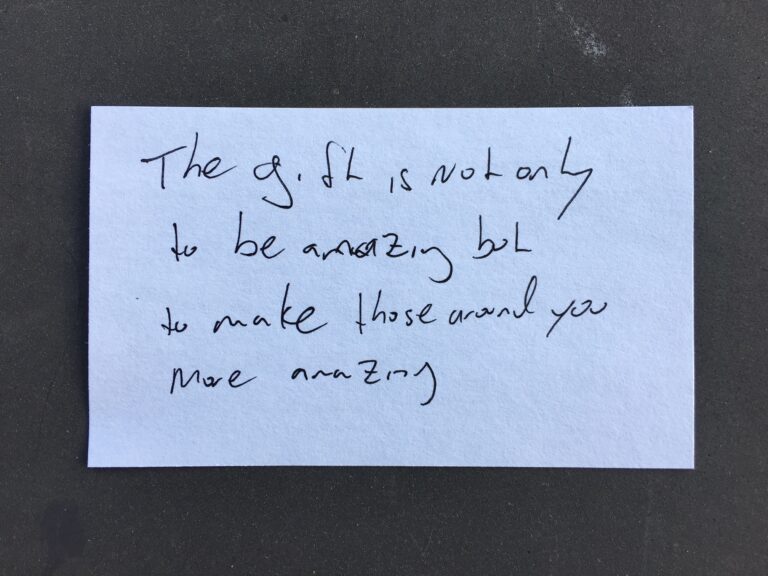 The gift is not only
to be amazing but
to make those around you
more amazing